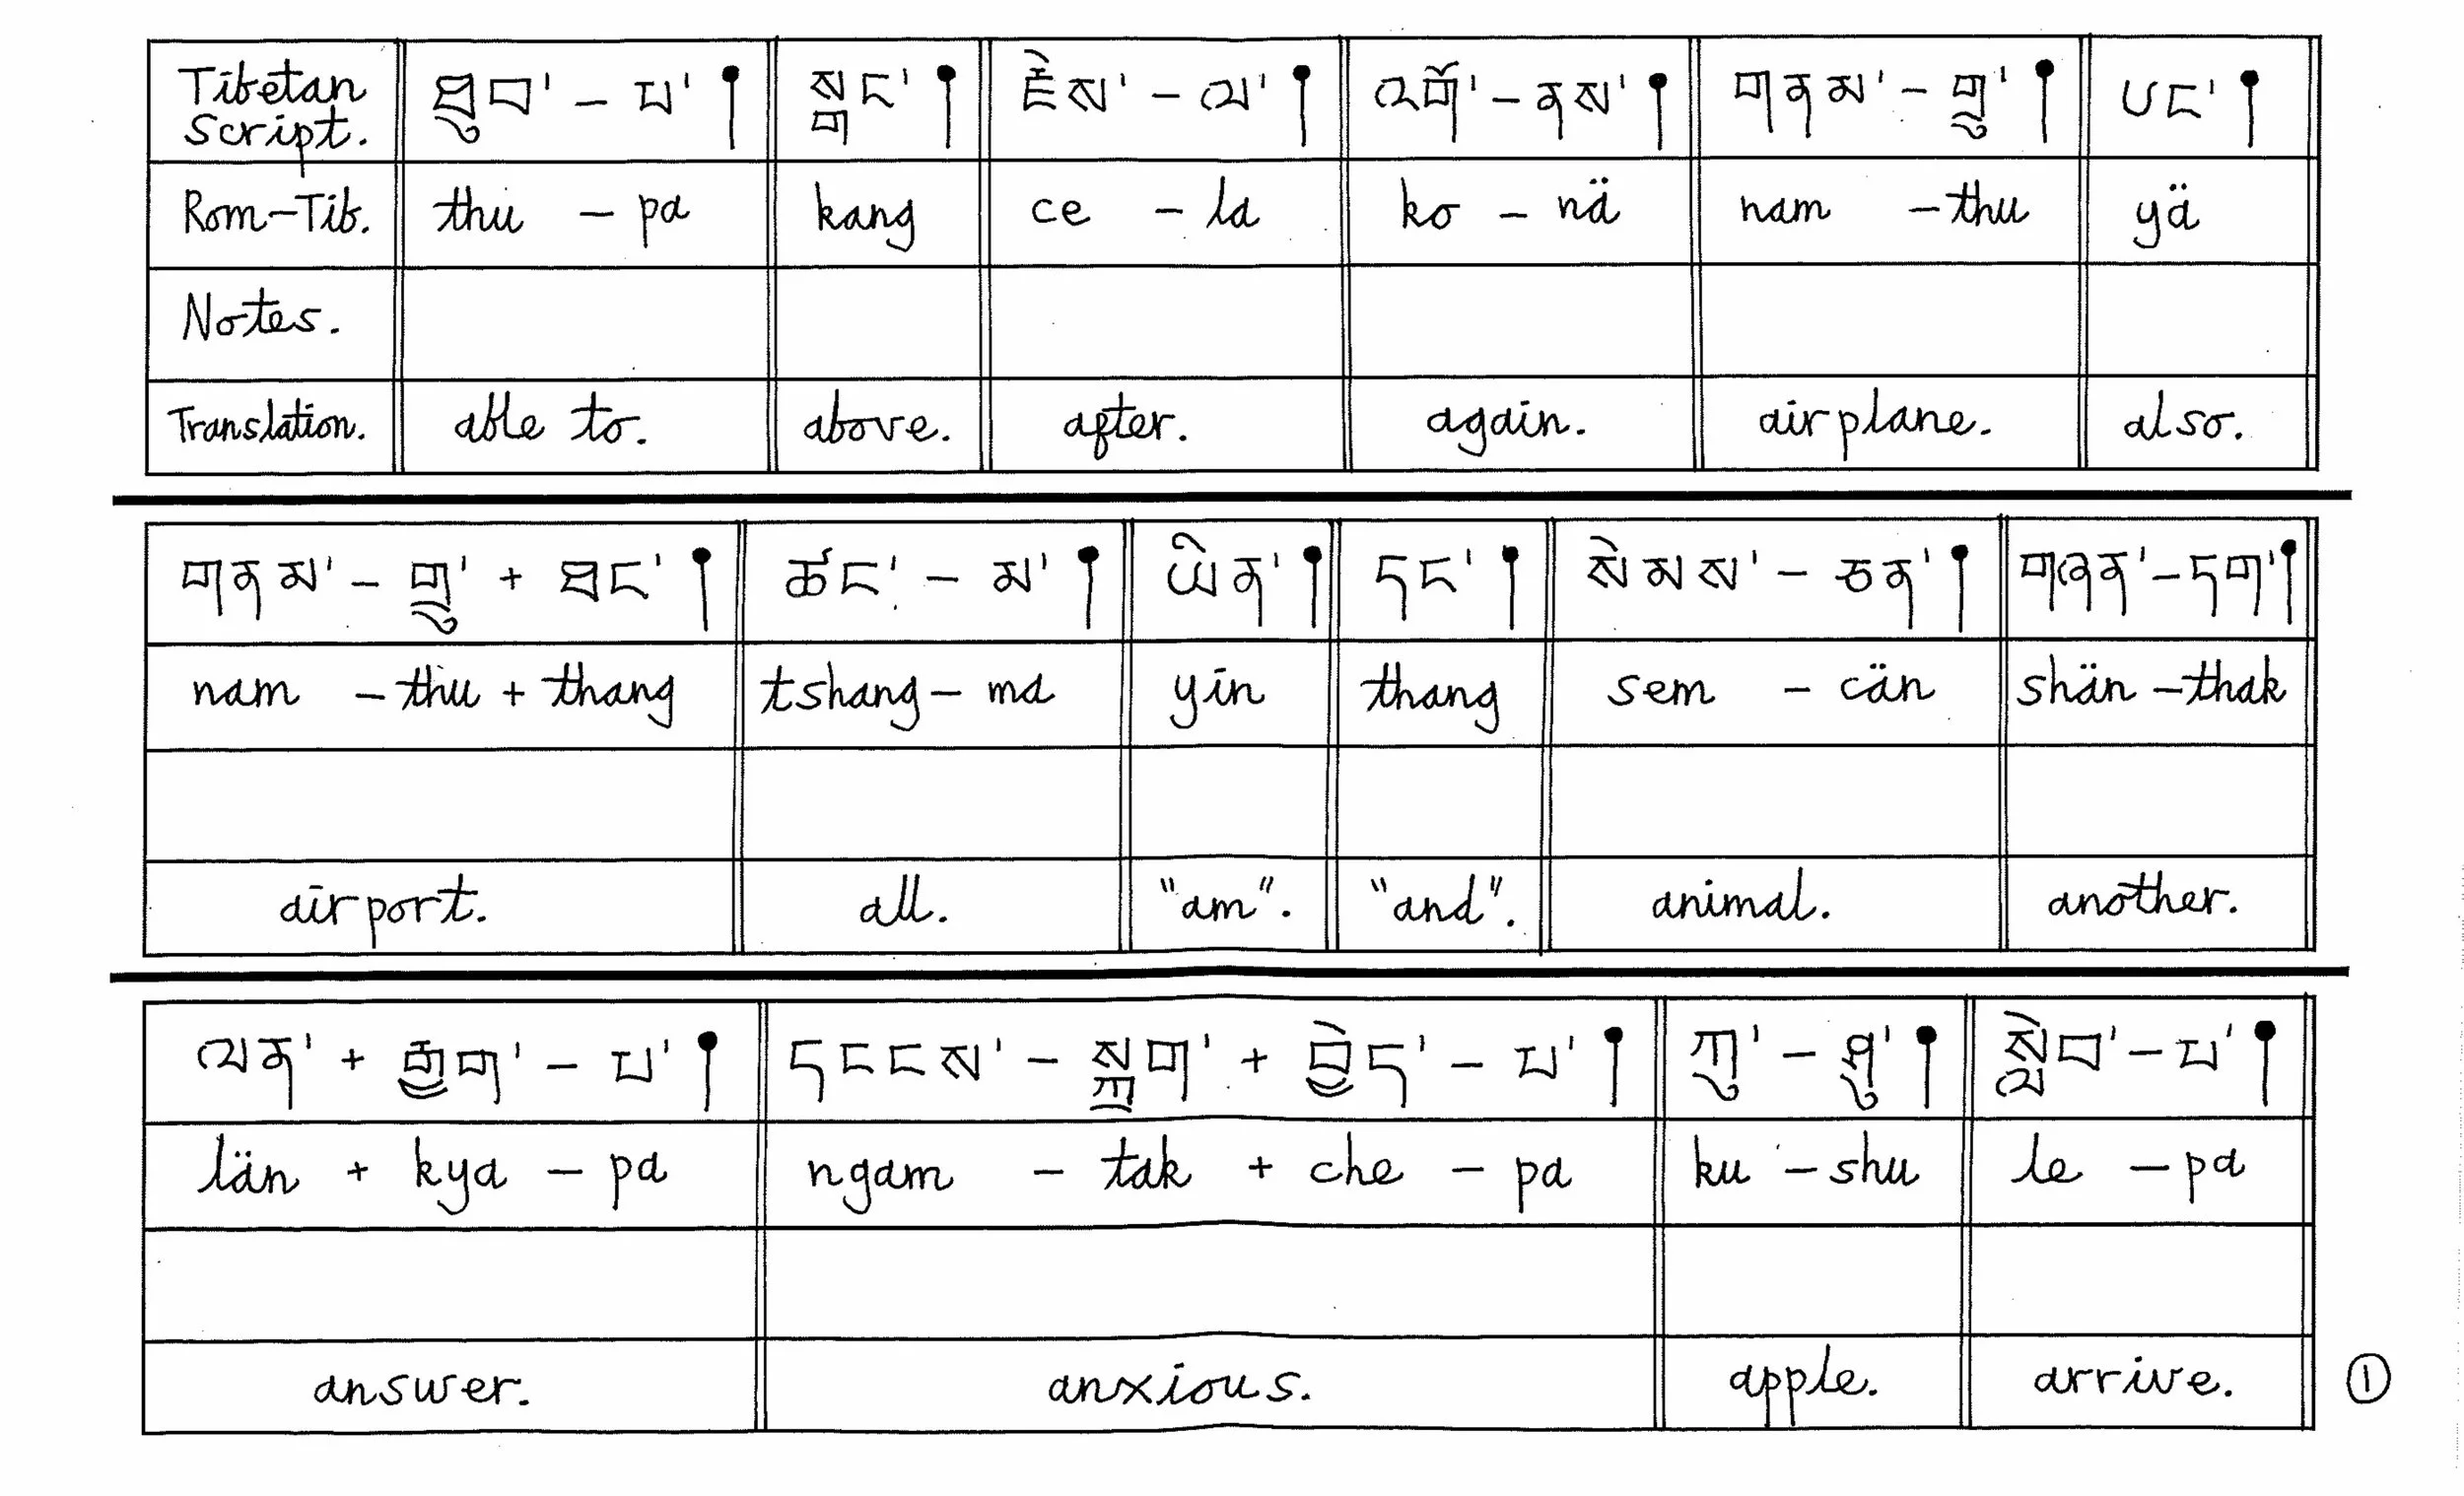 Tibetan Script. ཐུབ་ – པ་ । སྒང་ । རྗེས་ – ལ་ । འགོ་ – ནས་ । གནམ་ – གྲུ་ । ཡང་ །
Rom–Tib. thu – pa kang ce – la ko – nä nam – thu yä
Notes.
Translation. able to. above. after. again. airplane. also.
གནམ་ – གྲུ་ + ཐང་ । ཚང་ – མ་ । ཡིན་ । དང་ । སེམས་ – ཅན་ । གཞན་ – དག་ །
nam – thu + thang tshang – ma yin thang sem – cän shän – thak
airport. all. "am". "and". animal. another.
ལན་ + རྒྱག་ – པ་ । དངངས་ – སྐྲག་ + བྱེད་ – པ་ । ཀུ་ – ཤུ་ । སླེབ་ – པ་ །
län + kya – pa ngam – tak + che – pa ku – shu le – pa
answer. anxious. apple. arrive.
1